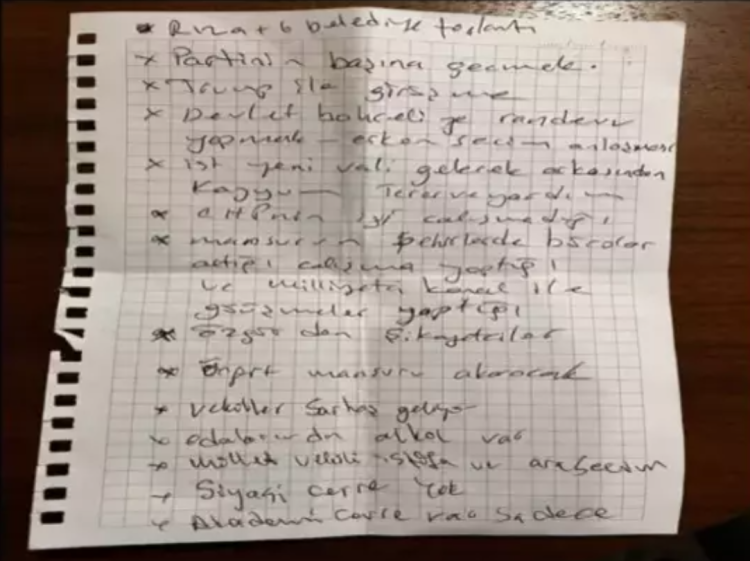 * Rıza + 6 belediye toplantı
* Partinin başına geçmek.
* Trump ile görüşme
* Devlet bahçeli ye randevu
yapmak - erken seçim anlaşması
* ist yeni vali gelecek arkasından
Kayyum Terör ve yardım
* CHPnin iyi çalışmadığı
* mansurun Şehirlerde bürolar
açtığı çalışma yaptığı
ve milliyetçi kanat ile
görüşmeler yaptığı
* Özgür den Şikayetçiler
* mansuru
* vekiller Sarhoş geliyor
* odalarında alkol var
* millet vekili istifa ve ara seçim
* Siyasi çevre Yok
* Akademi çevre var Sadece